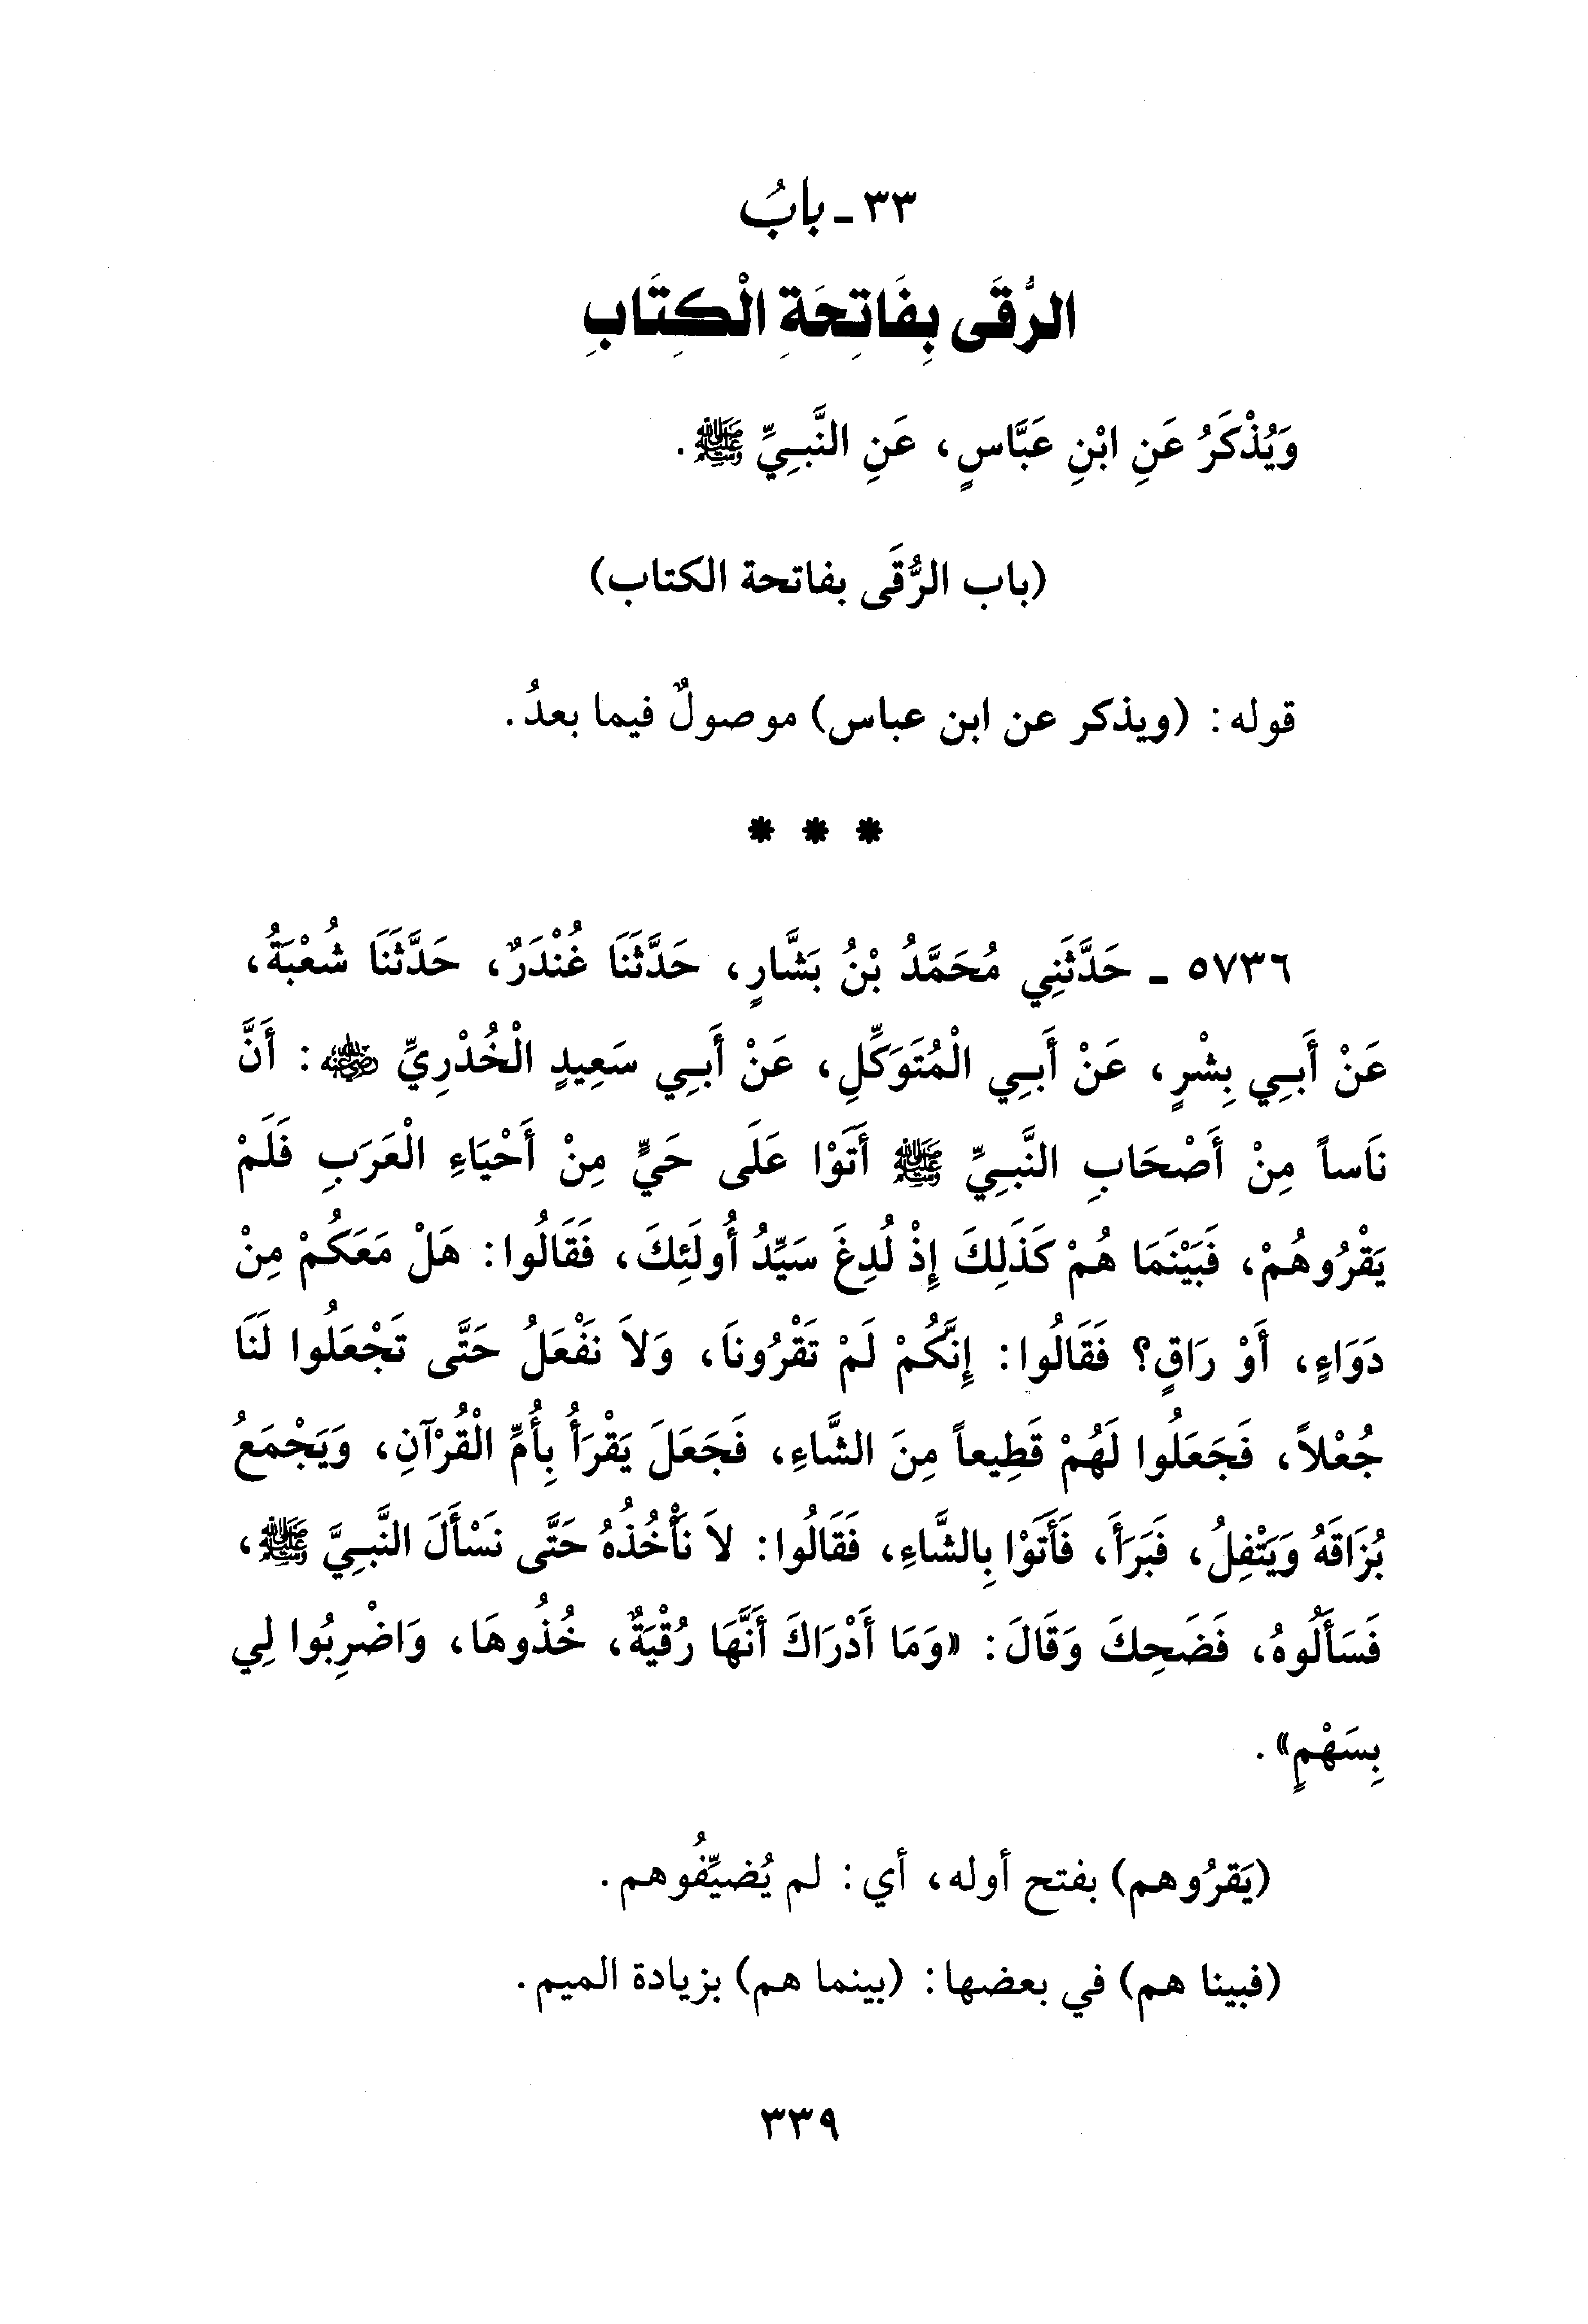 ٣٣ - بابُ
الرُّقَى بِفَاتِحَةِ الْكِتَابِ
وَيُذْكَرُ عَنِ ابْنِ عَبَّاسٍ، عَنِ النَّبِيِّ ﷺ.
(باب الرُّقَى بفاتحة الكتاب)
قوله: (ويذكر عن ابن عباس) موصولٌ فيما بعدُ.
* * *
٥٧٣٦ - حَدَّثَنِي مُحَمَّدُ بْنُ بَشَّارٍ، حَدَّثَنَا غُنْدَرٌ، حَدَّثَنَا شُعْبَةُ،
عَنْ أَبِي بِشْرٍ، عَنْ أَبِي الْمُتَوَكِّلِ، عَنْ أَبِي سَعِيدٍ الْخُدْرِيِّ ﵁: أَنَّ
نَاساً مِنْ أَصْحَابِ النَّبِيِّ ﷺ أَتَوْا عَلَى حَيٍّ مِنْ أَحْيَاءِ الْعَرَبِ فَلَمْ
يَقْرُوهُمْ، فَبَيْنَمَا هُمْ كَذَلِكَ إِذْ لُدِغَ سَيِّدُ أُولَئِكَ، فَقَالُوا: هَلْ مَعَكُمْ مِنْ
دَوَاءٍ، أَوْ رَاقٍ؟ فَقَالُوا: إِنَّكُمْ لَمْ تَقْرُونَا، وَلاَ نَفْعَلُ حَتَّى تَجْعَلُوا لَنَا
جُعْلاً، فَجَعَلُوا لَهُمْ قَطِيعاً مِنَ الشَّاءِ، فَجَعَلَ يَقْرَأُ بِأُمِّ الْقُرْآنِ، وَيَجْمَعُ
بُزَاقَهُ وَيَتْفِلُ، فَبَرَأَ، فَأَتَوْا بِالشَّاءِ، فَقَالُوا: لاَ نَأْخُذُهُ حَتَّى نَسْأَلَ النَّبِيَّ ﷺ،
فَسَأَلُوهُ، فَضَحِكَ وَقَالَ: «وَمَا أَدْرَاكَ أَنَّهَا رُقْيَةٌ، خُذُوهَا، وَاضْرِبُوا لِي
بِسَهْمٍ».
(يَقرُوهم) بفتح أوله، أي: لم يُضيِّفُوهم.
(فبينا هم) في بعضها: (بينما هم) بزيادة الميم.
٣٣٩